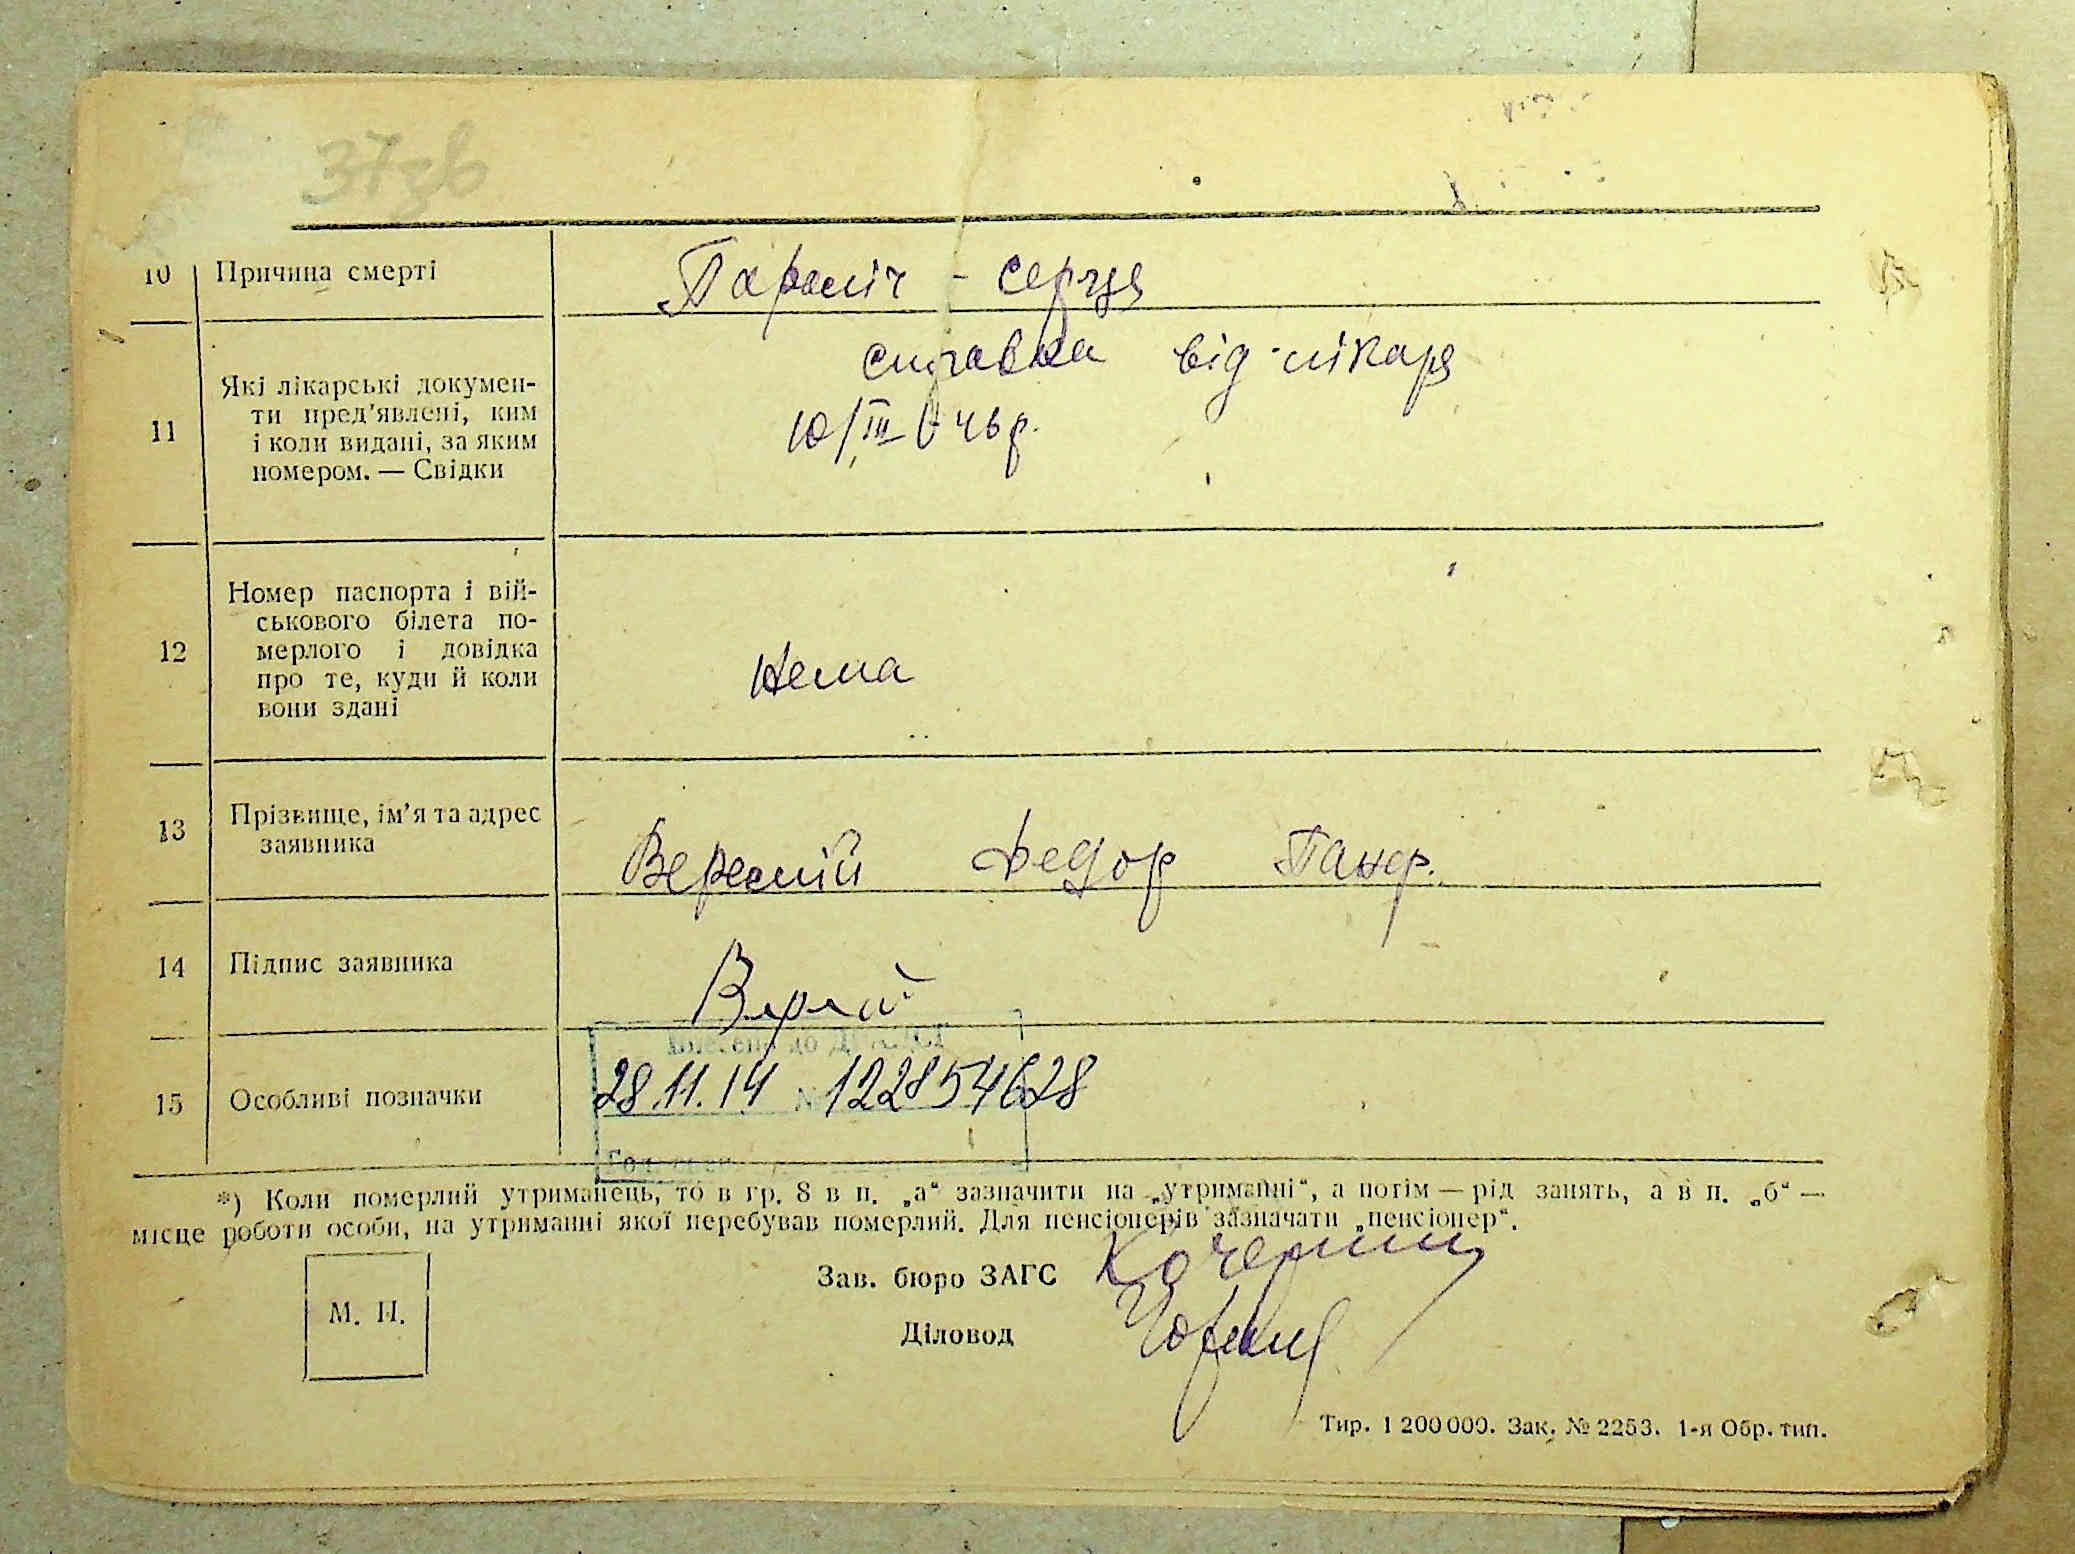 37зв
10 Причина смерті Параліч - серця
11 Які лікарські докумен-
ти пред'явлені, ким
і коли видані, за яким
номером. — Свідки
справка від лікаря
10/III-46р.
12 Номер паспорта і вій-
ськового білета по-
мерлого і довідка
про те, куди й коли
вони здані
Нема
13 Прізвище, ім'я та адрес
заявника
Федор Панф.
14 Підпис заявника
15 Особливі позначки
28.11.14 № 122854628
*) Коли померлий утриманець, то в гр. 8 в п. „а“ зазначити на „утриманні“, а потім — рід занять, а в п. „б“ —
місце роботи особи, на утриманні якої перебував померлий. Для пенсіонерів зазначати „пенсіонер“.
Зав. бюро ЗАГС
М. П.
Діловод
Тир. 1 200 000. Зак. № 2253. 1-я Обр. тип.